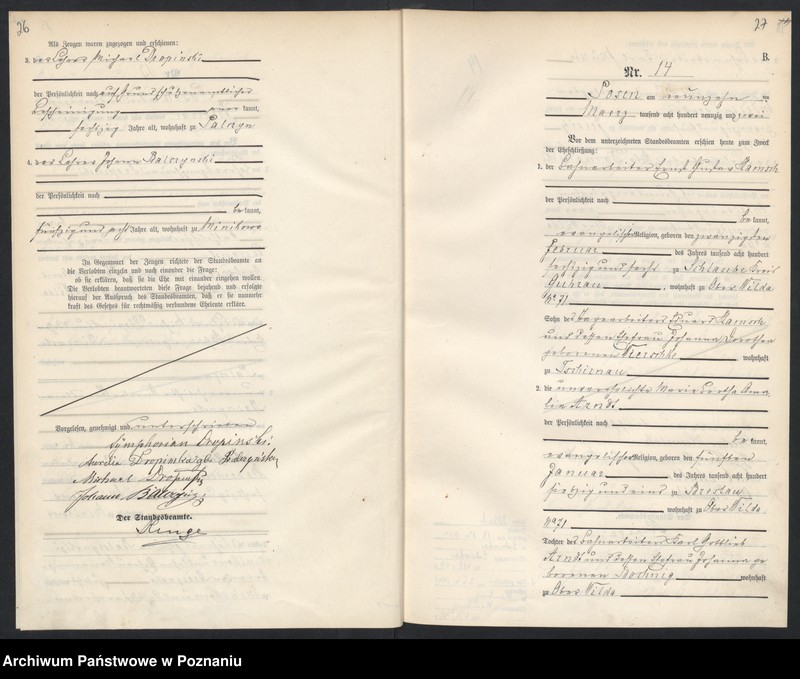 26
Als Zeugen waren zugezogen und erschienen:
3. der Lehrer Michael Dropinski
der Persönlichkeit nach auf Grund
Bescheinigung kannt,
sechzig Jahre alt, wohnhaft zu
4. der Lehrer Johann
der Persönlichkeit nach
be kannt,
fünfzig und acht Jahre alt, wohnhaft zu Minikowo
In Gegenwart der Zeugen richtete der Standesbeamte an
die Verlobten einzeln und nach einander die Frage:
ob sie erklären, daß sie die Ehe mit einander eingehen wollen.
Die Verlobten beantworteten diese Frage bejahend und erfolgte
hierauf der Ausspruch des Standesbeamten, daß er sie nunmehr
kraft des Gesetzes für rechtmäßig verbundene Eheleute erkläre.
Vorgelesen, genehmigt und unterschrieben
Symphorian Dropinski
Aurelia Dropinska
Michael Dropinski
Johann
Der Standesbeamte.
27
B.
Nr. 14
Posen am neunzehn ten
Maerz tausend acht hundert neunzig und zwei
Vor dem unterzeichneten Standesbeamten erschien heute zum Zweck
der Eheschließung:
1. der Bahnarbeiter Ernst Gustav
der Persönlichkeit nach
be kannt,
evangelischer Religion, geboren den zwanzigsten
Februar des Jahres tausend acht hundert
sechzig und sechs zu Kreis
Guhrau, wohnhaft zu Ober Wilda
No 71
Sohn des Eduard
und dessen Ehefrau Johanna Dorothea
geborenen wohnhaft
zu Tschirnau
2. die unverehelichte Marie Bertha Ama-
lie Arndt
der Persönlichkeit nach
be kannt,
evangelischer Religion, geboren den fünften
Januar des Jahres tausend acht hundert
siebzig und eins zu Breslau
wohnhaft zu Ober Wilda
No 71
Tochter des Bahnarbeiters Karl Gottlieb
Arndt und dessen Ehefrau Johanna ge-
borenen wohnhaft
zu Ober Wilda
Archiwum Państwowe w Poznaniu